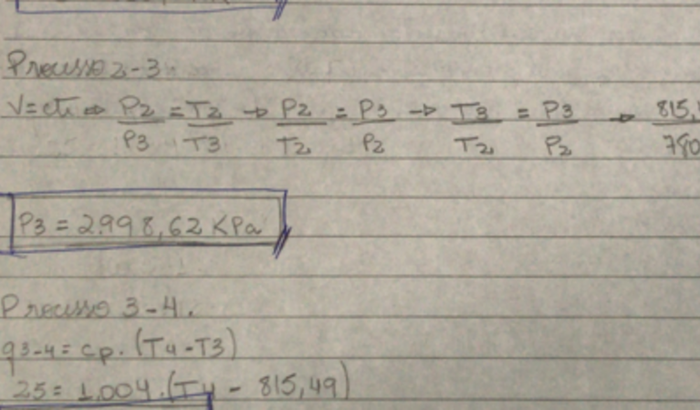 Processo 2-3
V=cte ⇒ P2/P3 = T2/T3 → P2/T2 = P3/P2 → T3/T2 = P3/P2 → 815,
P3 = 2.998,62 KPa
Processo 3-4.
q3-4 = cp. (T4-T3)
25 = 1,004.(T4 - 815,49)